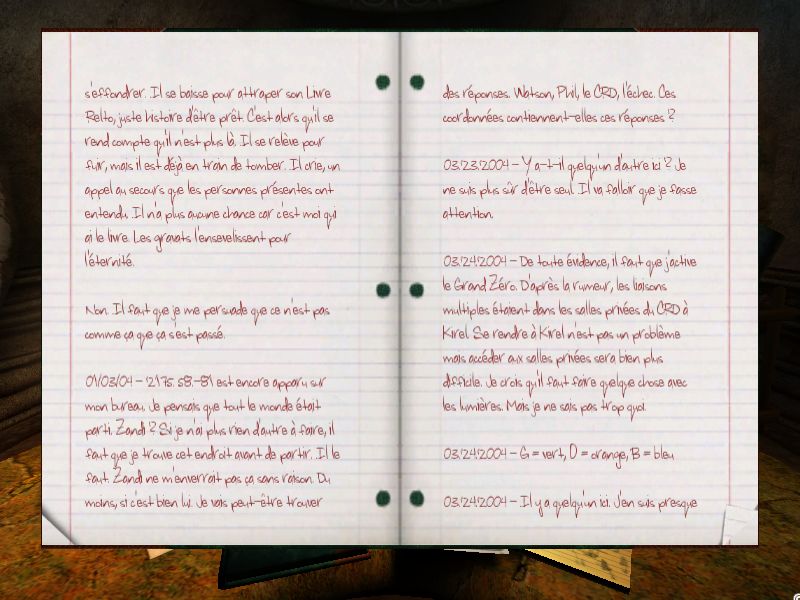 s'effondrer. Il se baisse pour attraper son Livre
Relto, juste histoire d'être prêt. C'est alors qu'il se
rend compte qu'il n'est plus là. Il se relève pour
fuir, mais il est déjà en train de tomber. Il crie, un
appel au secours que les personnes présentes ont
entendu. Il n'a plus aucune chance car c'est moi qui
ai le livre. Les gravats l'ensevelissent pour
l'éternité.
Non. Il faut que je me persuade que ce n'est pas
comme ça que ça s'est passé.
01/03/04 – '2175. 58.-81 est encore apparu sur
mon bureau. Je pensais que tout le monde était
parti. Zandi ? Si je n'ai plus rien d'autre à faire, il
faut que je trouve cet endroit avant de partir. Il le
faut. Zandi ne m'enverrait pas ça sans raison. Du
moins, si c'est bien lui. Je vais peut-être trouver
des réponses. Watson, Phil, le CRD, l'échec. Ces
coordonnées contiennent-elles ces réponses ?
03.23.2004 – Y a-t-il quelqu'un d'autre ici ? Je
ne suis plus sûr d'être seul. Il va falloir que je fasse
attention.
03.24.2004 – De toute évidence, il faut que j'active
le Grand Zéro. D'après la rumeur, les liaisons
multiples étaient dans les salles privées du CRD à
Kirel. Se rendre à Kirel n'est pas un problème
mais accéder aux salles privées sera bien plus
difficile. Je crois qu'il faut faire quelque chose avec
les lumières. Mais je ne sais pas trop quoi.
03.24.2004 – G = vert, O = orange, B = bleu
03.24.2004 – Il y a quelqu'un ici. J'en suis presque